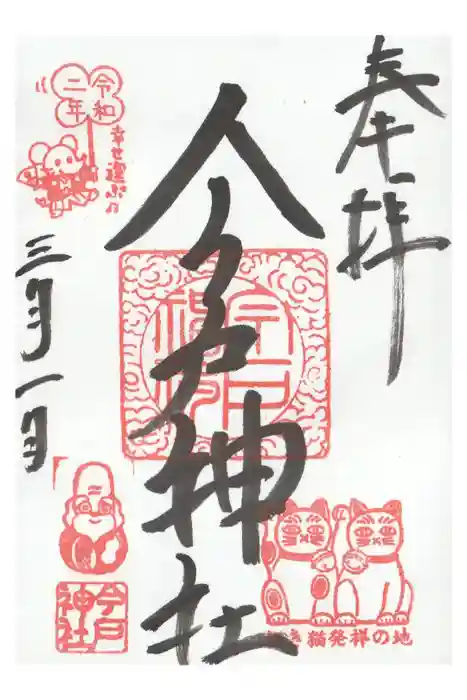 奉拝
今戸神社
令和
二年
幸せ運ぶ♫
三月一日
今戸
神社
猫発祥の地